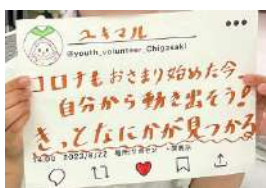 ユキマル
@youth_volunteer_Chigasaki
コロナもおさまり始めた今
自分から動き出そう！
きっとなにかが見つかる
14:00 2022/8/22